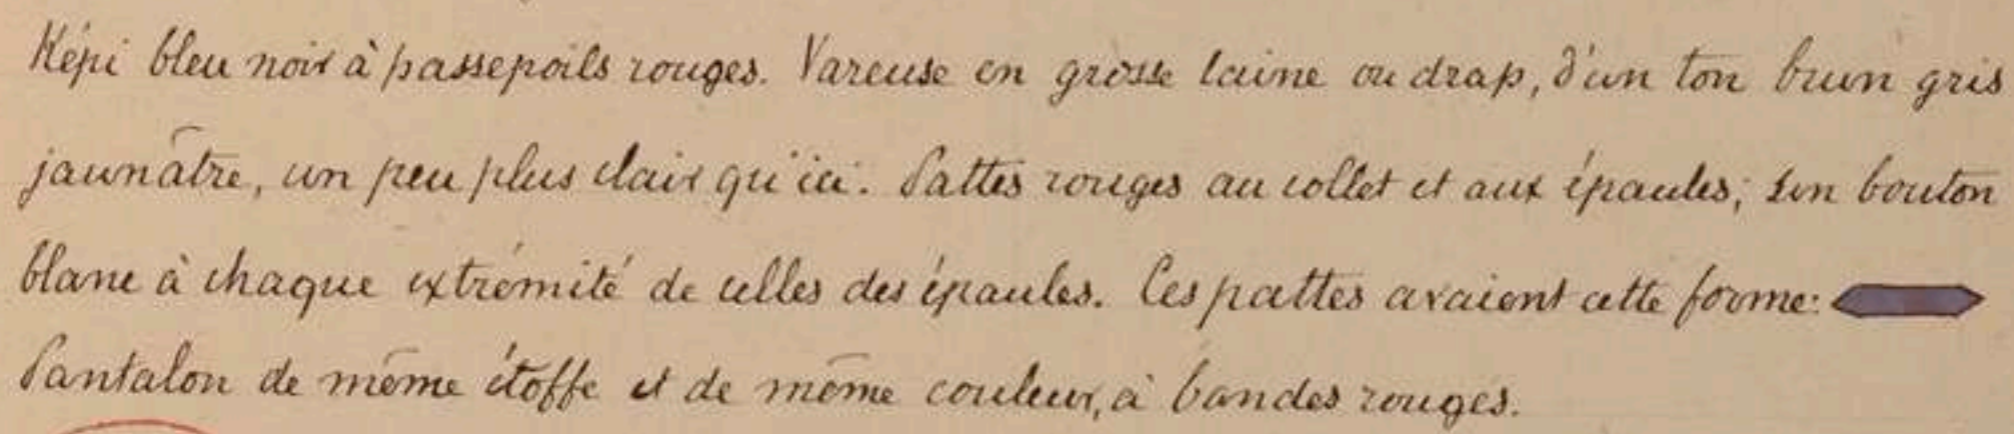 Képi bleu noir à passepoils rouges. Vareuse en grosse laine ou drap, d'un ton brun gris
jaunâtre, un peu plus clair qu'ici. Pattes rouges au collet et aux épaules; un bouton
blanc à chaque extrémité de celles des épaules. Ces pattes avaient cette forme:
Pantalon de même étoffe et de même couleur, à bandes rouges.